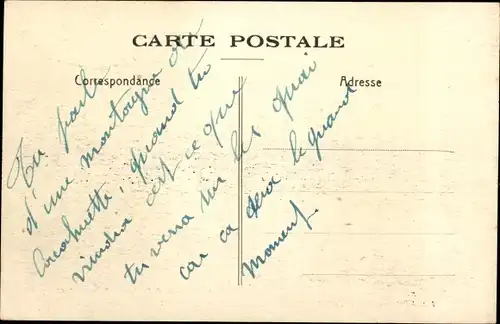 CARTE POSTALE
Correspondance
Adresse
Tu parle
d'une montagne de
cacahuette, quand tu
viendra est ce que
tu verra sur les quai
car ca sera le grand
moment.